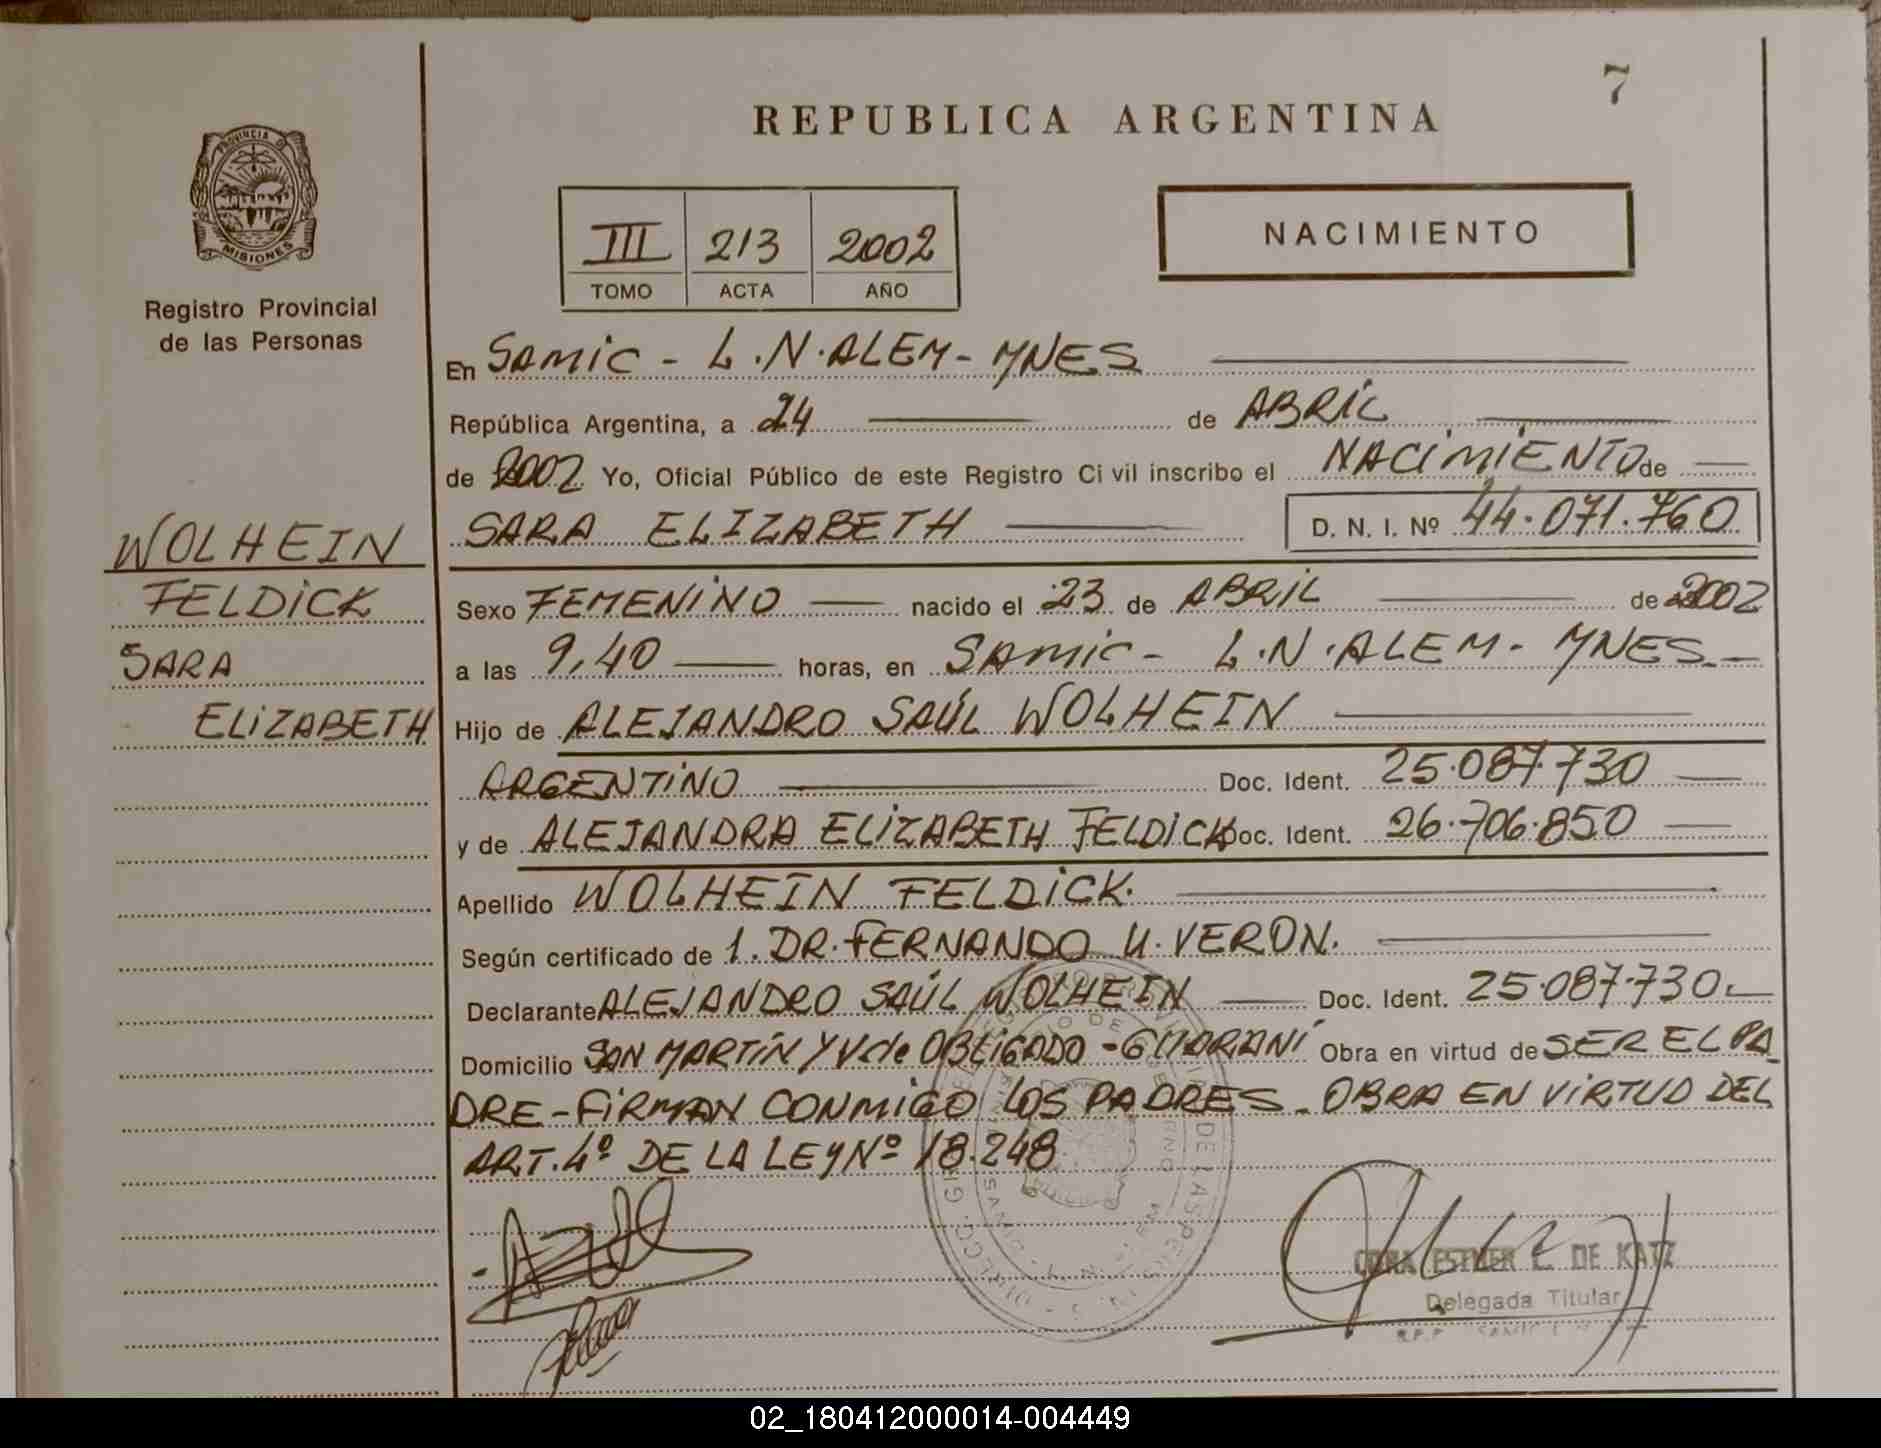 7
REPUBLICA ARGENTINA
PROVINCIA DE
MISIONES
Registro Provincial
de las Personas
III 213 2002
TOMO ACTA AÑO
NACIMIENTO
En SAMIC - L.N.ALEM - MNES
República Argentina, a 24 de ABRIL
de 2002 Yo, Oficial Público de este Registro Civil inscribo el NACIMIENTO de
SARA ELIZABETH D. N. I. Nº 44.071.760
WOLHEIN
FELDICK
SARA
ELIZABETH
Sexo FEMENINO nacido el 23 de ABRIL de 2002
a las 9,40 horas, en SAMIC - L.N.ALEM - MNES.
Hijo de ALEJANDRO SAÚL WOLHEIN
ARGENTINO Doc. Ident. 25.087.730
y de ALEJANDRA ELIZABETH FELDICK Doc. Ident. 26.706.850
Apellido WOLHEIN FELDICK.
Según certificado de 1. DR. FERNANDO U. VERON.
Declarante ALEJANDRO SAÚL WOLHEIN Doc. Ident. 25.087.730.
Domicilio SAN MARTÍN Y V de OBLIGADO - GUARANÍ Obra en virtud de SER EL PA
DRE - FIRMAN CONMIGO LOS PADRES. OBRA EN VIRTUD DEL
ART. 4º DE LA LEY Nº 18.248
ESTHER DE KATZ
Delegada Titular
02_180412000014-004449